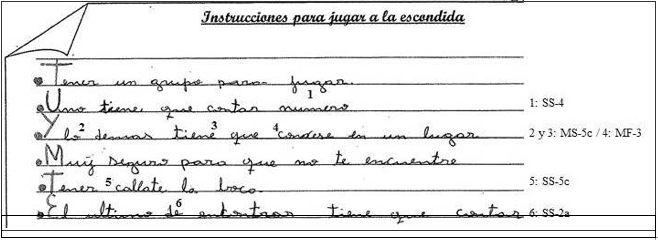 Instrucciones para jugar a la escondida
• Tener un grupo para jugar.
• Uno tiene que contar numero 1 1: SS-4
• Y lo 2 demas tiene 3 que 4 condese en un lugar 2 y 3: MS-5c / 4: MF-3
• Muy seguro para que no te encuentre
• Tener 5 callate la boca. 5: SS-5c
• El ultimo de 6 tiene que contar 6: SS-2a